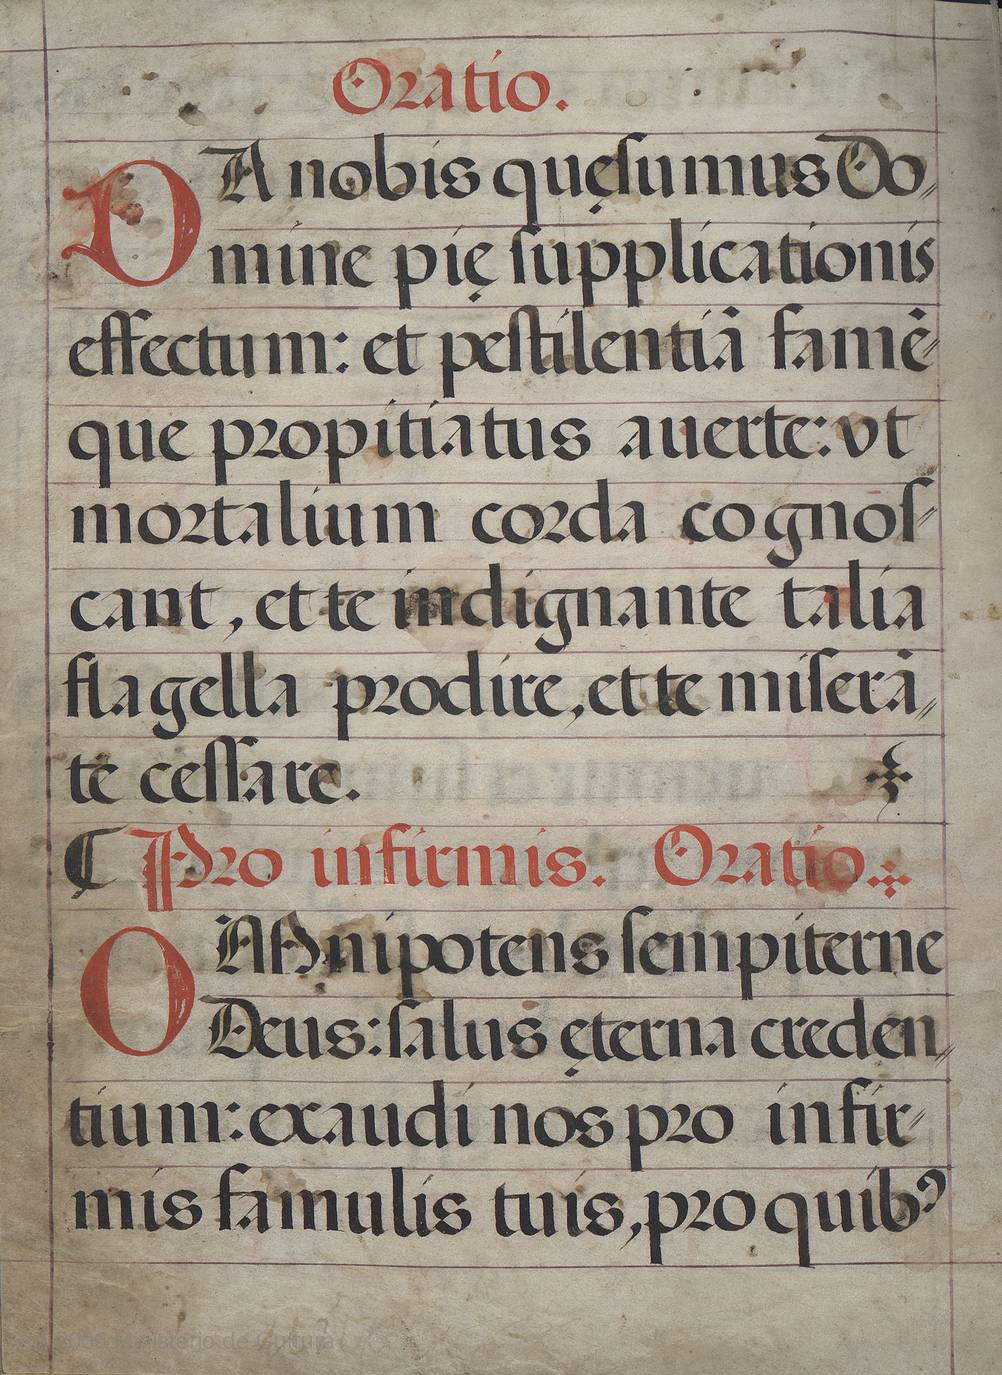 Oratio.
DA nobis quęſumus Do„
mine pię ſupplicationis
effectum: et peſtilentiā famē-
que propitiatus auerte: vt
mortalium corda cognoſ-
cant, et te indignante talia
flagella prodire, et te miſerā„
te ceſſare.
¶ Pro infirmis. Oratio.
OMnipotens ſempiterne
Deus: ſalus ęterna creden„
tium: exaudi nos pro infir-
mis famulis tuis, pro quibꝰ
Ministerio de Cultura